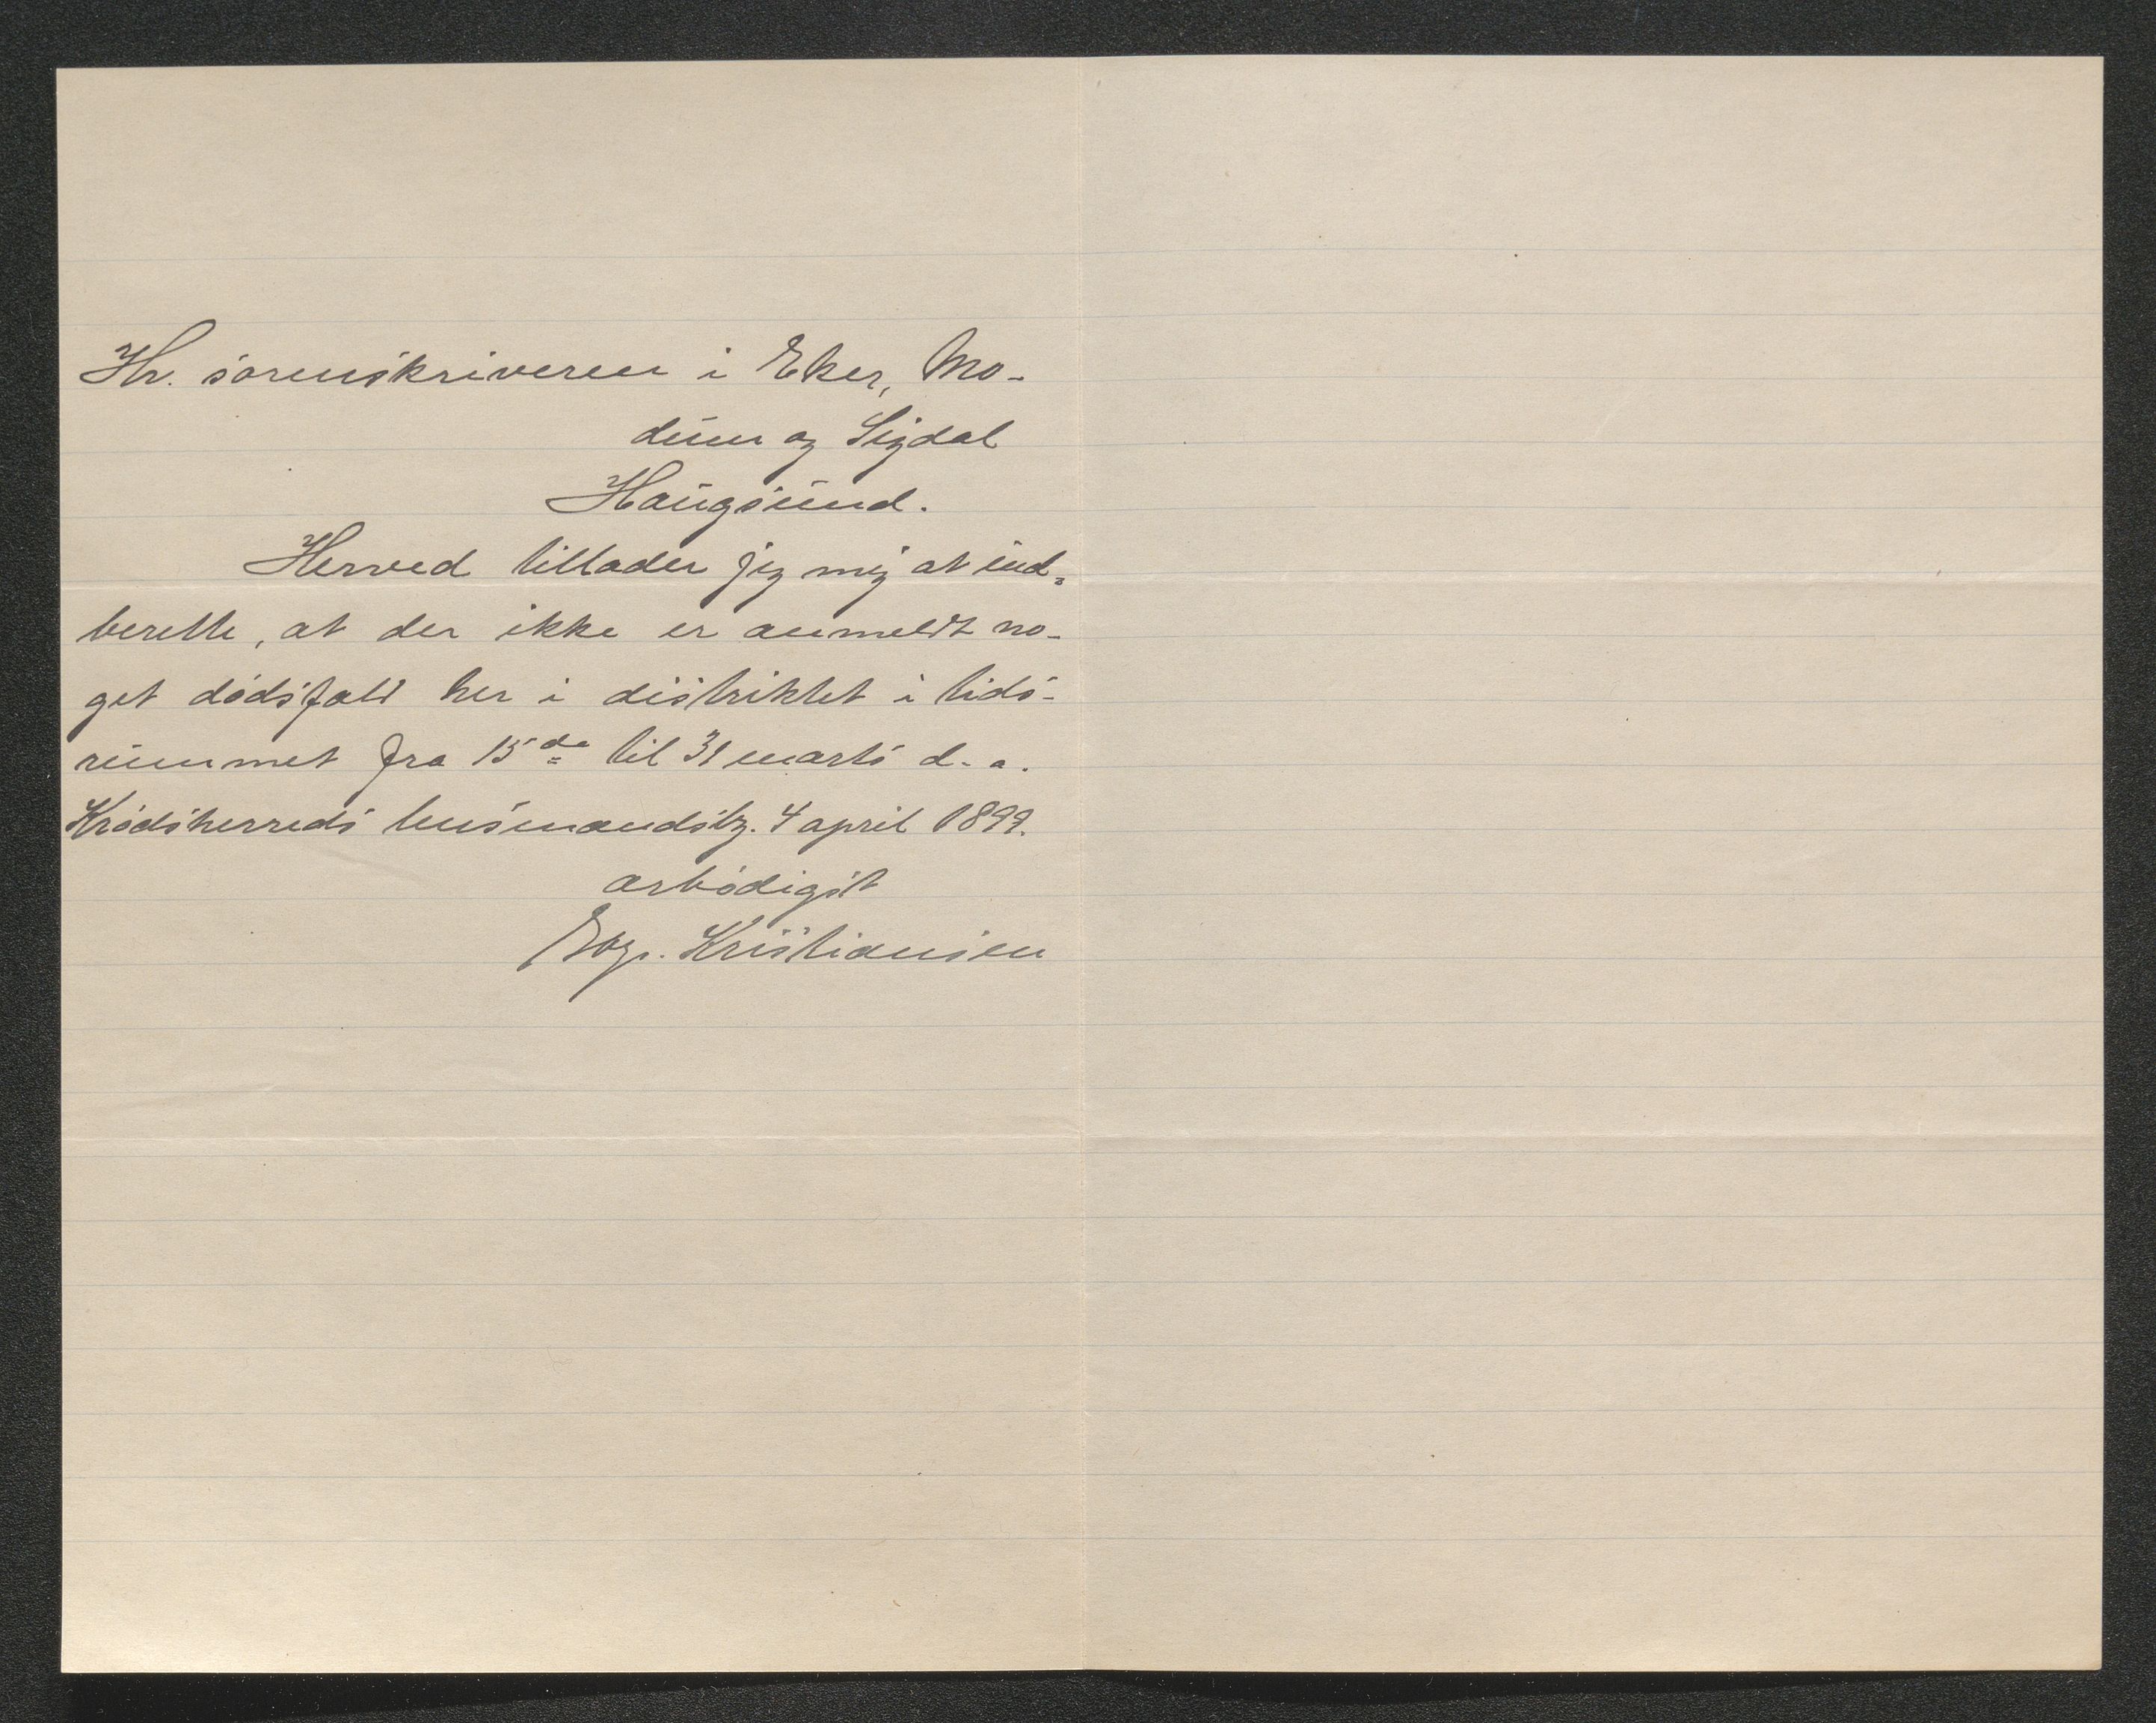 Hr. sorenskriveren i Eker, Mo-
dum og Sigdal
Haugsund.
Herved tillader jeg mig at ind-
berette, at der ikke er anmeldt no-
get dødsfald her i distriktet i tids-
rummet fra 15de til 31 marts d. a.
Krødsherreds lensmandsbg. 4 april 1899.
ærbødigst
Kristiansen